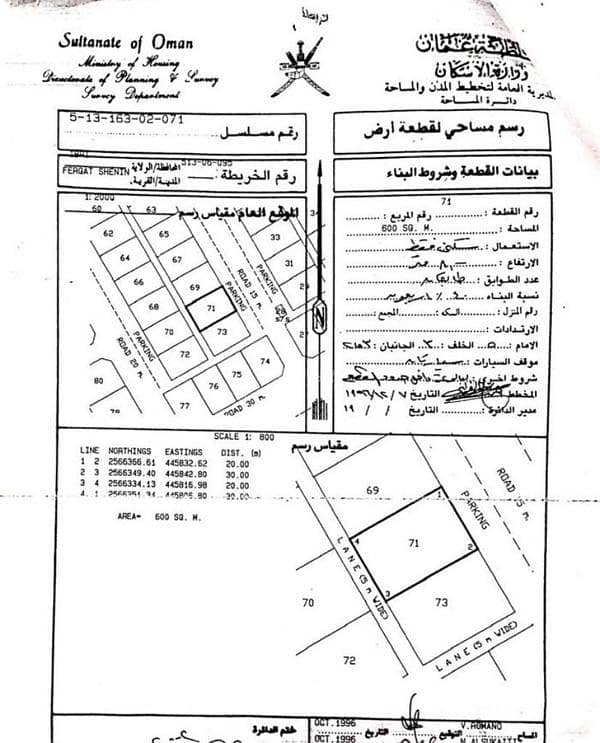 Sultanate of Oman
Ministry of Housing
Directorate of Planning & Survey
Survey Department
سلطنة عمان
وزارة الإسكان
المديرية العامة لتخطيط المدن والمساحة
دائرة المساحة
رسم مساحي لقطعة أرض
رقم مسلسل
5-13-163-02-071
بيانات القطعة وشروط البناء
رقم الخريطة
513-06-095
المحافظة/الولاية
IBRI
المدينة/القرية.
FERQAT SHENIN
1: 2000
الموقع العام مقياس رسم
60
63
62
65
64
67
66
69
68
71
70
73
72
33
31
74
75
76
77
80
78
PARKING
ROAD 15 m
PARKING
ROAD 20 m
ROAD 30 m
N
رقم القطعة : 71 رقم المربع :
المساحة : 600 SQ. M.
الاستعمال : سكني فقط
الارتفاع :
عدد الطوابق :
نسبة البناء :
رقم المنزل : السكة : المجمع :
الارتدادات :
الامام : الخلف : الجانبان :
موقف السيارات :
شروط اخرى :
المخطط التاريخ
مدير الدائرة التاريخ / / ١٩
SCALE 1: 800
مقياس رسم
LINE NORTHINGS EASTINGS DIST. (m)
1 2 2566366.61 445832.62 20.00
2 3 2566349.40 445842.80 30.00
3 4 2566334.13 445816.98 20.00
4 1 2566351.34 445806.80 30.00
AREA= 600 SQ. M.
69
71
73
70
72
1
2
3
4
ROAD 15 m
PARKING
LANE (5 m WIDE)
LANE (5 m WIDE)
ختم الدائرة
OCT.1996
التاريخ
التوقيع
V.ROMANO
المساح
OCT.1996